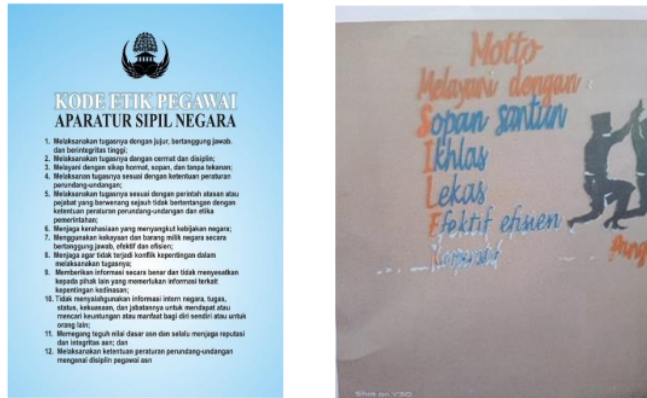 KODE ETIK PEGAWAI
APARATUR SIPIL NEGARA
1. Melaksanakan tugasnya dengan jujur, bertanggung jawab.
dan berintegritas tinggi;
2. Melaksanakan tugasnya dangan cermat dan disiplin;
3. Melayani dengan sikap hormat, sopan, dan tanpa tekanan;
4. Melaksanan tugasnya sesuai dengan ketentuan peraturan
perundang-undangan;
5. Melaksanakan tugasnya sesuai dengan perintah atasan atau
pejabat yang berwenang sejauh tidak bertentangan dengan
ketentuan peraturan perundang-undangan dan etika
pemerintahan;
6. Menjaga kerahasiaan yang menyangkut kebijakan negara;
7. Menggunakan kekayaan dan barang milik negara secara
bertanggung jawab, efektif dan efisien;
8. Menjaga agar tidak terjadi konflik kepentingan dalam
melaksanakan tugasnya;
9. Memberikan informasi secara benar dan tidak menyesatkan
kepada pihak lain yang memerlukan informasi terkait
kepentingan kedinasan;
10. Tidak menyalahgunakan informasi intern negara, tugas,
status, kekuasaan, dan jabatannya untuk mendapat atau
mencari keuntungan atau manfaat bagi diri sendiri atau untuk
orang lain;
11. Memegang teguh nilai dasar asn dan selalu menjaga reputasi
dan integritas asn; dan
12. Melaksanakan ketentuan peraturan perundang-undangan
mengenai disiplin pegawai asn
Motto
Melayani dengan :
Sopan santun
Ikhlas
Lekas
Efektif efisien
Shot on Y30